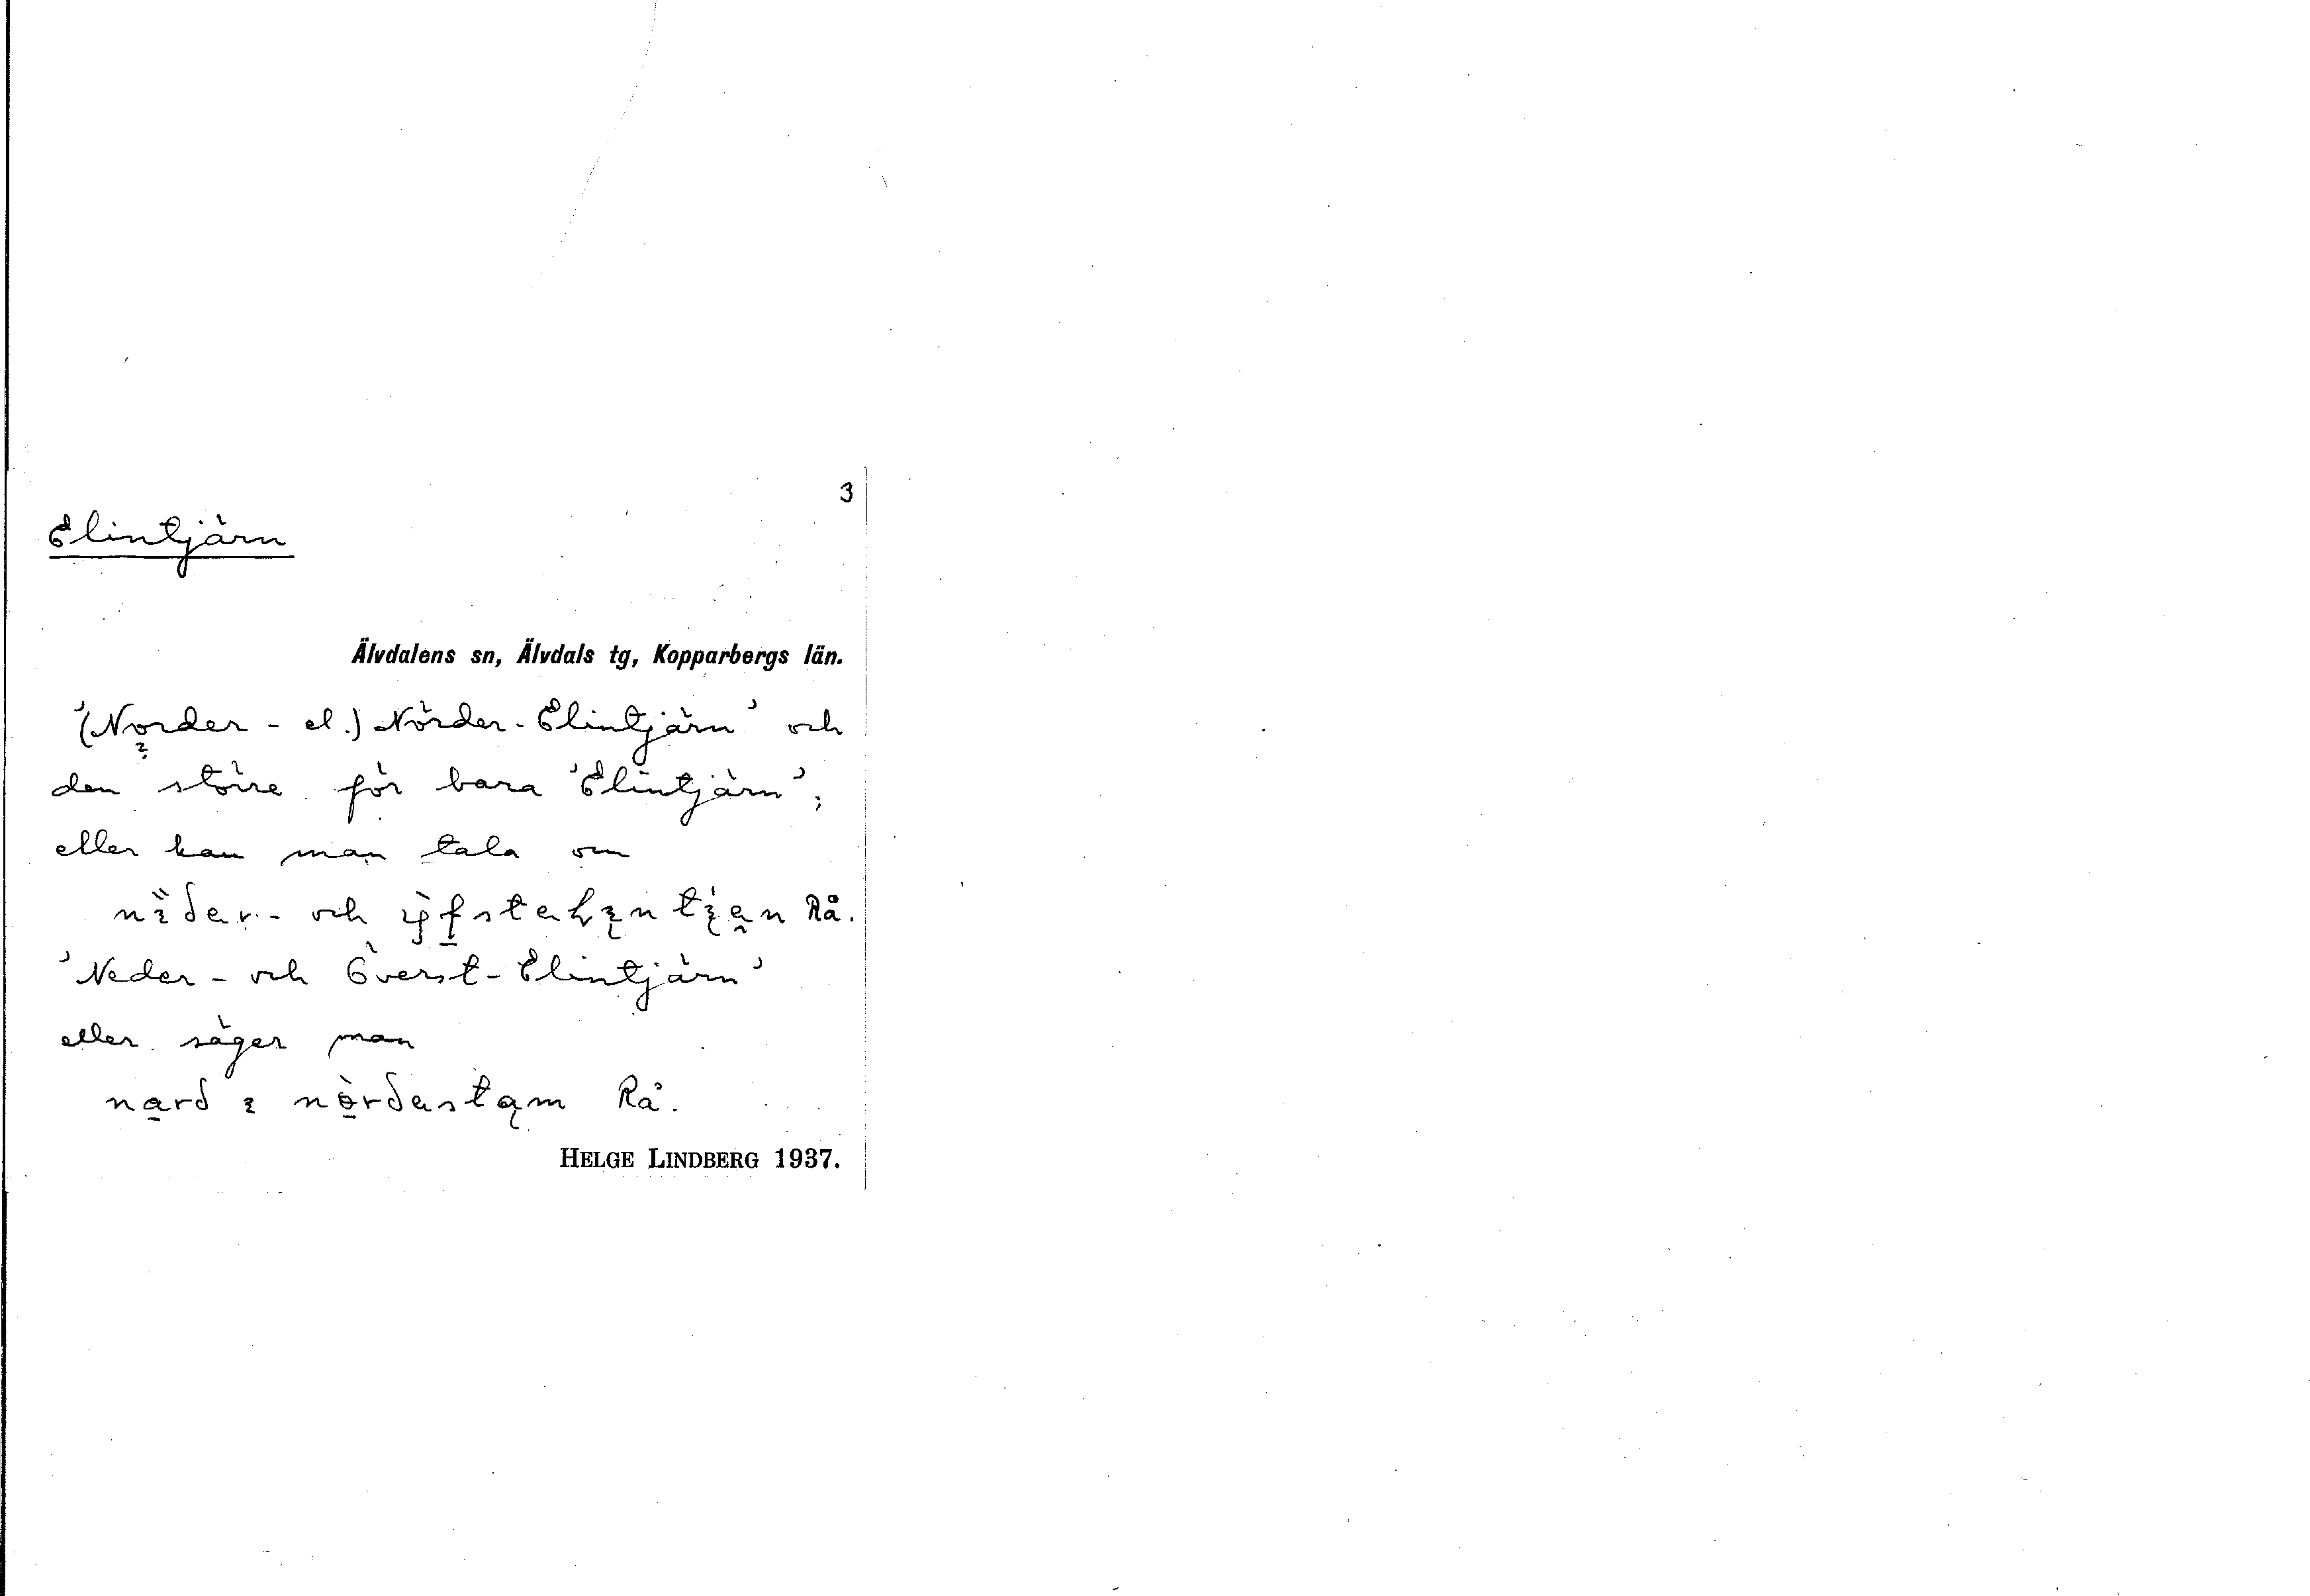 3
Elintjärn
Älvdalens sn, Älvdals tg, Kopparbergs län.
'(Norder- el.) Nörder-Elintjärn' och
den större för bara 'Elintjärn';
eller kan man tala om
och Rå.
'Neder- och Överst-Elintjärn'
eller säger man
Rå.
HELGE LINDBERG 1937.